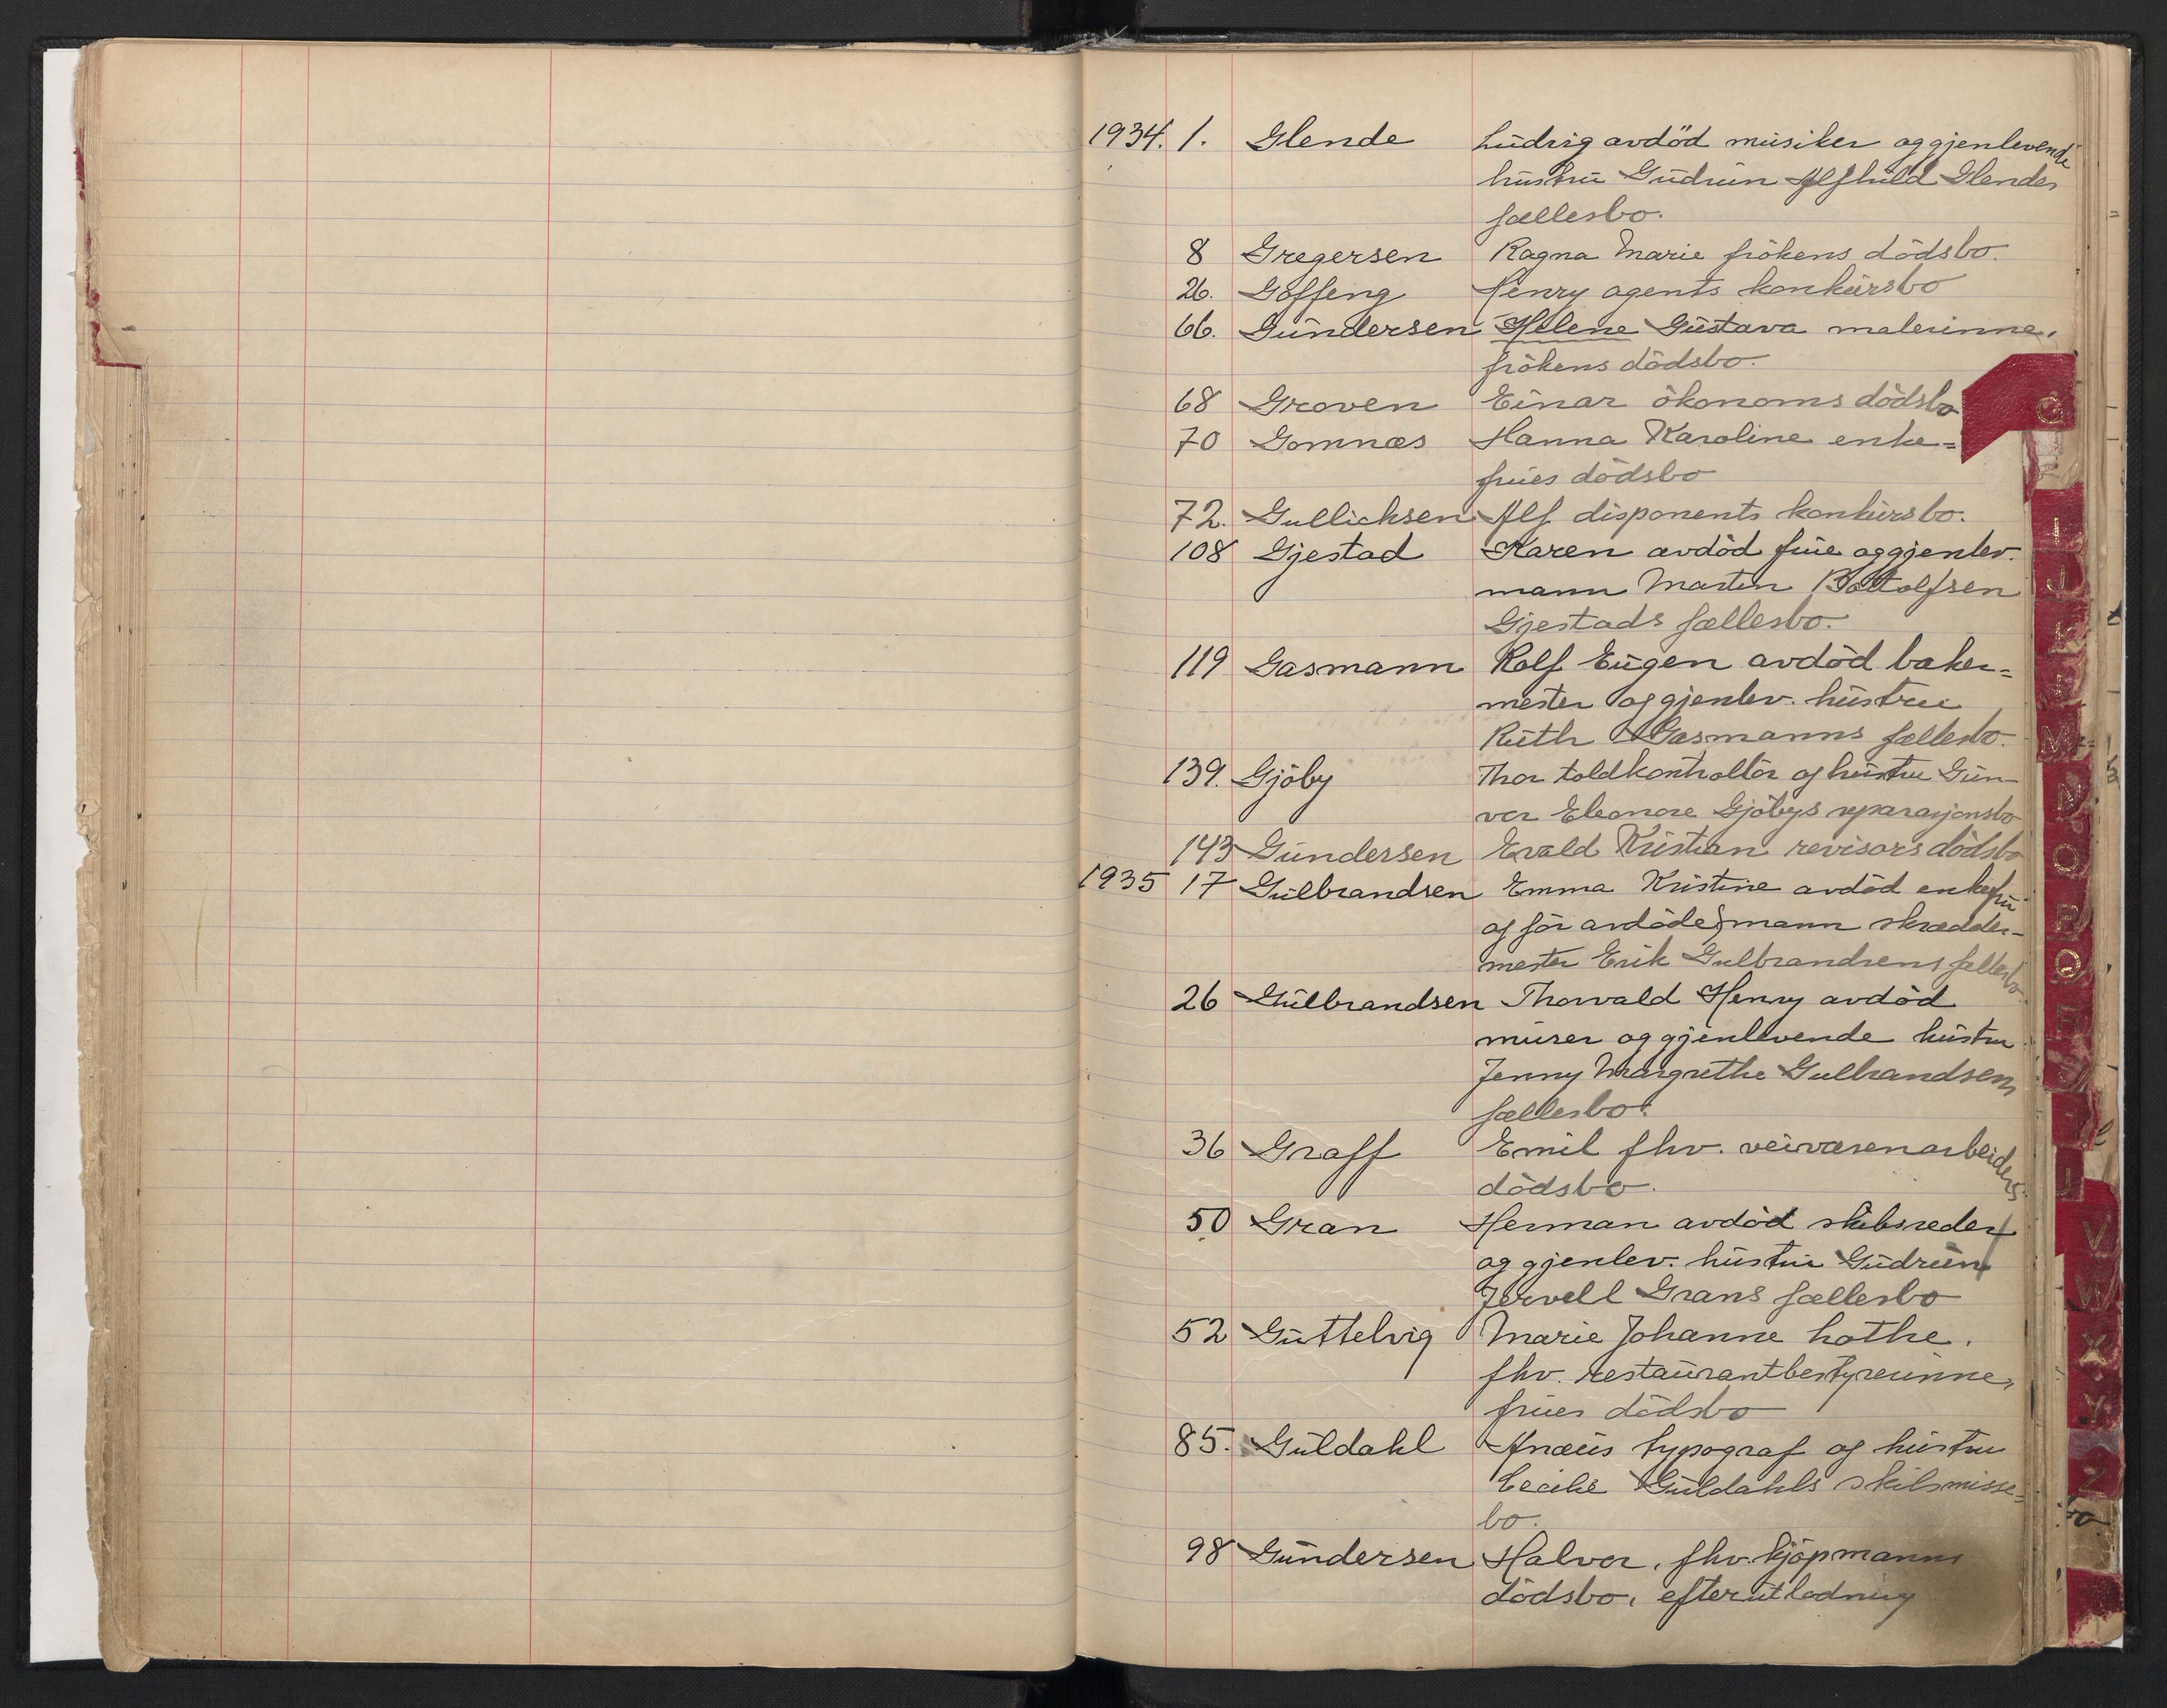 1934. 1. Glende Ludvig avdöd musiker og gjenlevende
hustru Gudrun Alfhild Glendes
fællesbo.
8 Gregersen Ragna Marie frökens dödsbo.
26. Goffeng Henry agents konkursbo
66. Gundersen Helene Gustava malerinne,
frökens dödsbo.
68 Groven Einar ökonoms dödsbo
70 Gomnæs Hanna Karoline enke=
frues dödsbo
72. Gullichsen Alf disponents konkursbo.
108 Gjestad Karen avdöd frue og gjenlev.
mann Martin Bottolfsen
Gjestads fællesbo.
119 Gasmann Rolf Eugen avdöd baker=
mester og gjenlev. hustru
Ruth Gasmanns fællesbo.
139. Gjöby Thor toldkontrollör og hustru Gun-
vor Eleonore Gjöbys separasjonsbo
143 Gundersen Evald Kristian revisors dödsbo
1935 17 Gulbrandsen Emma Kristine avdöd enkefru
og för avdöde mann skrædder-
mester Erik Gulbrandsens fellesbo
26 Gulbrandsen Thorvald Henry avdöd
murer og gjenlevende hustru
Jenny Margrethe Gulbrandsens
fællesbo.
36 Graff Emil fhv. veivæsenarbeiders
dödsbo.
50 Gran Herman avdöd skibsreder
og gjenlev. hustru Gudrun
Jervell Grans fællesbo
52 Guttelvig Marie Johanne
fhv. restaurantbestyrerinne,
frues dödsbo
85. Guldahl Anæus typograf og hustru
Cecilie Guldahls skilsmisse=
bo.
98 Gundersen Halvor, fhv. kjöpmanns
dödsbo, efterutlodning
G
I
J
M
N
O
P
Q
V
W
X
Y
Z